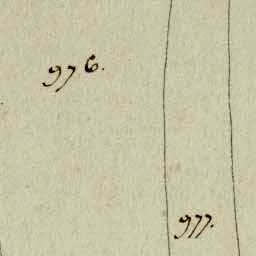 976.
977.